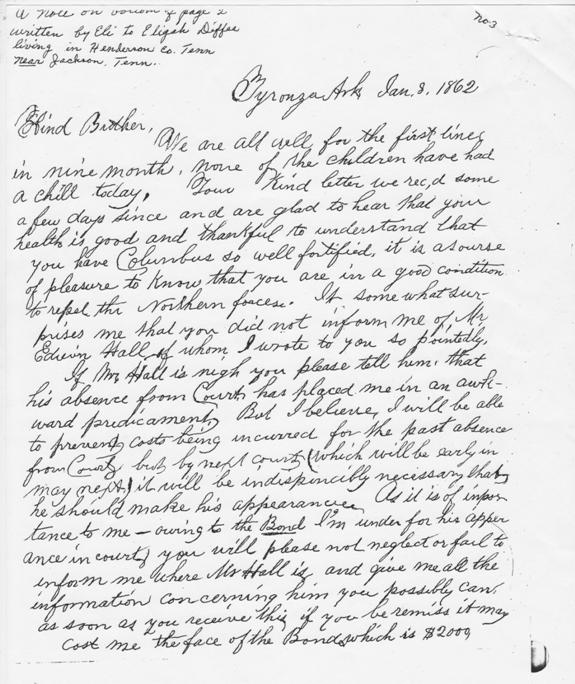 A note on bottom of page 2
written by Eli to Elijah Diffee
living in Henderson Co. Tenn
near Jackson, Tenn.
no 3
Tyronza Ark Jan. 8. 1862
Kind Brother,
We are all well for the first time
in nine month, none of the children have had
a chill today. Your Kind letter we rec,d some
a few days since and are glad to hear that your
health is good and thankful to understand that
you have Columbus so well fortified, it is a sourse
of pleasure to know that you are in a good condition
to repel the Northern foceses. It some what sur-
prises me that you did not inform me of Mr
Edwin Hall, of whom I wrote to you so pointedly,
If Mr Hall is nigh you please tell him that
his absence from Court has placed me in an awk-
ward predicament, But I believe, I will be able
to prevent costs being incurred for the past absence
from Court, but by next court (which will be early in
may next) it will be indispincibly necessary that
he should make his appearance. As it is of impor-
tance to me - owing to the Bond I'm under for his apper
ance in court, you will please not neglect or fail to
inform me where Mr Hall is, and give me all the
information concerning him you possibly can,
as soon as you receive this, if you be remiss it may
cost me the face of the Bond, which is $2000